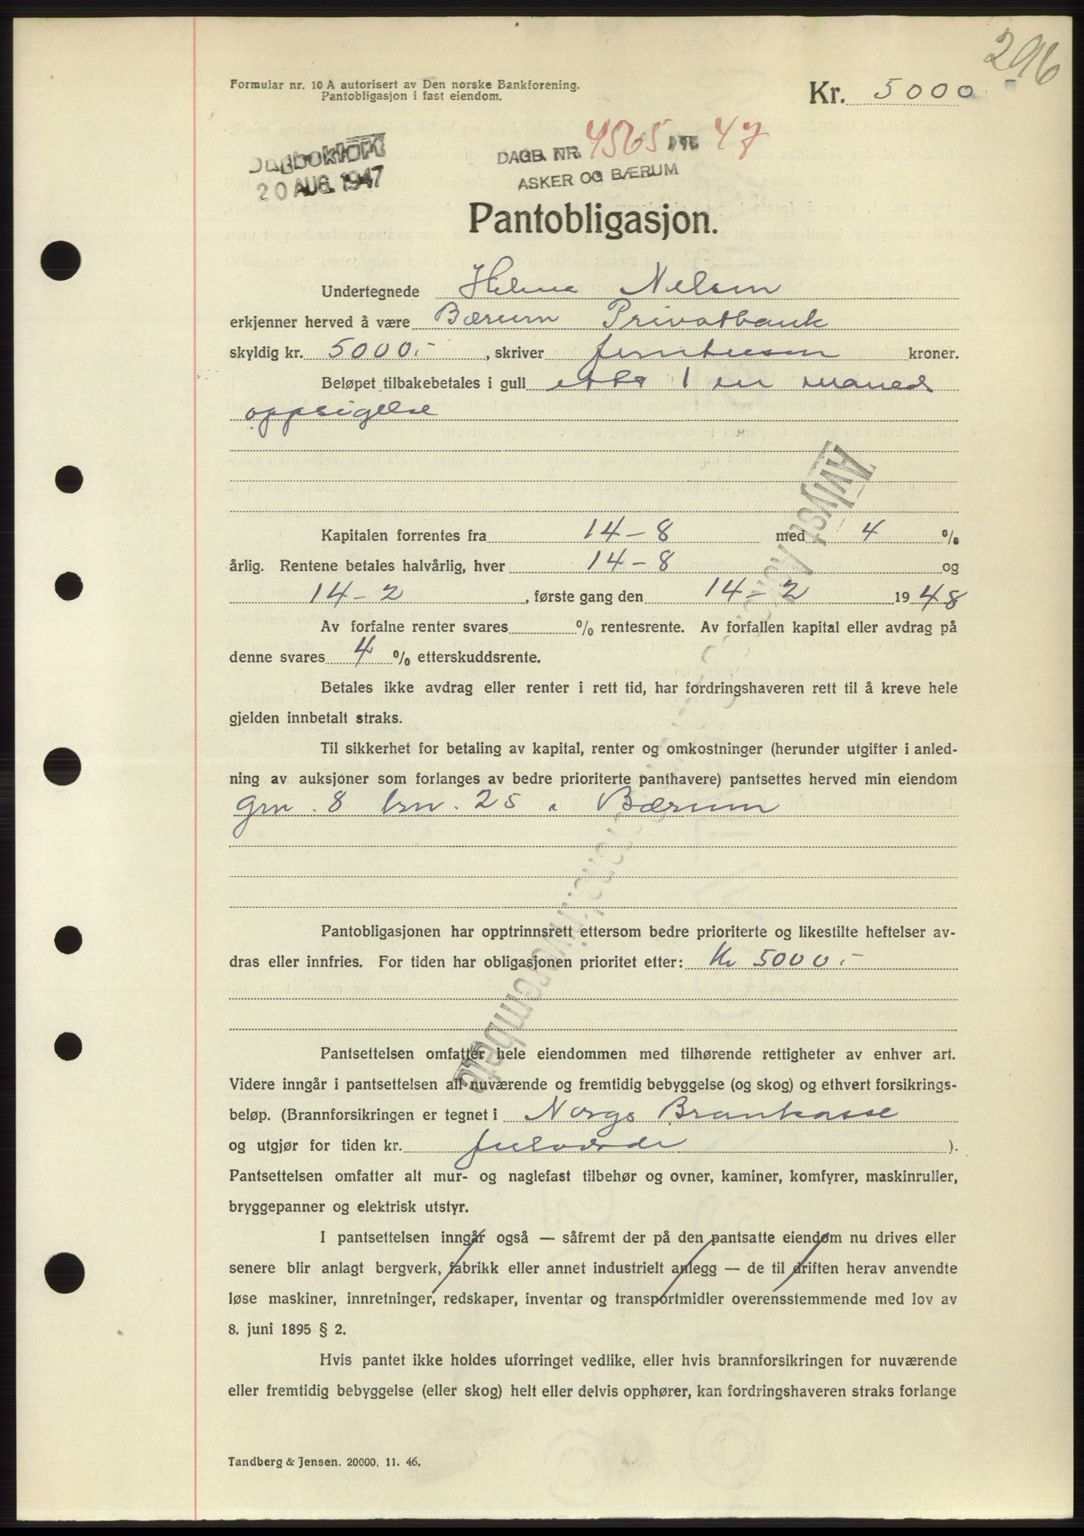 296
Formular nr. 10 A autorisert av Den norske Bankforening.
Pantobligasjon i fast eiendom.
Kr. 5000
Dagbokført
20 AUG. 1947
DAGB. NR. 4565 1947
ASKER OG BÆRUM
Pantobligasjon.
Undertegnede Helene Nelsen
erkjenner herved å være Bærum Privatbank
skyldig kr. 5000.- , skriver femtusen kroner.
Beløpet tilbakebetales i gull etter 1 en måneds
oppsigelse
Kapitalen forrentes fra 14-8 med 4 %
årlig. Rentene betales halvårlig, hver 14-8 og
14-2 , første gang den 14-2 1948
Av forfalne renter svares % rentesrente. Av forfallen kapital eller avdrag på
denne svares 4 % etterskuddsrente.
Betales ikke avdrag eller renter i rett tid, har fordringshaveren rett til å kreve hele
gjelden innbetalt straks.
Til sikkerhet for betaling av kapital, renter og omkostninger (herunder utgifter i anled-
ning av auksjoner som forlanges av bedre prioriterte panthavere) pantsettes herved min eiendom
grn. 8 brn. 25 i Bærum
Pantobligasjonen har opptrinnsrett ettersom bedre prioriterte og likestilte heftelser av-
dras eller innfries. For tiden har obligasjonen prioritet etter: Kr 5000.-
Pantsettelsen omfatter hele eiendommen med tilhørende rettigheter av enhver art.
Videre inngår i pantsettelsen all nuværende og fremtidig bebyggelse (og skog) og ethvert forsikrings-
beløp. (Brannforsikringen er tegnet i Norges Brankasse
og utgjør for tiden kr. fullverdi ).
Pantsettelsen omfatter alt mur- og naglefast tilbehør og ovner, kaminer, komfyrer, maskinruller,
bryggepanner og elektrisk utstyr.
I pantsettelsen inngår også — såfremt der på den pantsatte eiendom nu drives eller
senere blir anlagt bergverk, fabrikk eller annet industrielt anlegg — de til driften herav anvendte
løse maskiner, innretninger, redskaper, inventar og transportmidler overensstemmende med lov av
8. juni 1895 § 2.
Hvis pantet ikke holdes uforringet vedlike, eller hvis brannforsikringen for nuværende
eller fremtidig bebyggelse (eller skog) helt eller delvis opphører, kan fordringshaveren straks forlange
Tandberg & Jensen. 20000. 11. 46.
Avlyst Asker og Bærum sorenskriverembete